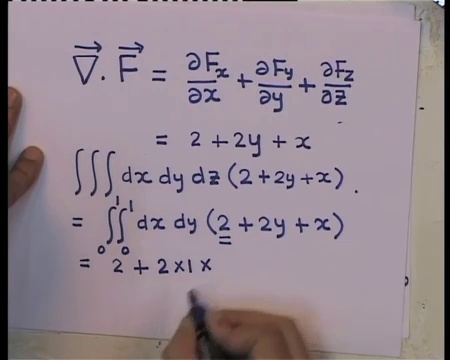 ∇⃗ . F⃗ = ∂Fx/∂x + ∂Fy/∂y + ∂Fz/∂z
= 2 + 2y + x
∫∫∫ dx dy dz (2 + 2y + x) .
= ∫₀¹ ∫₀¹ dx dy (2 + 2y + x)
= 2 + 2×1×